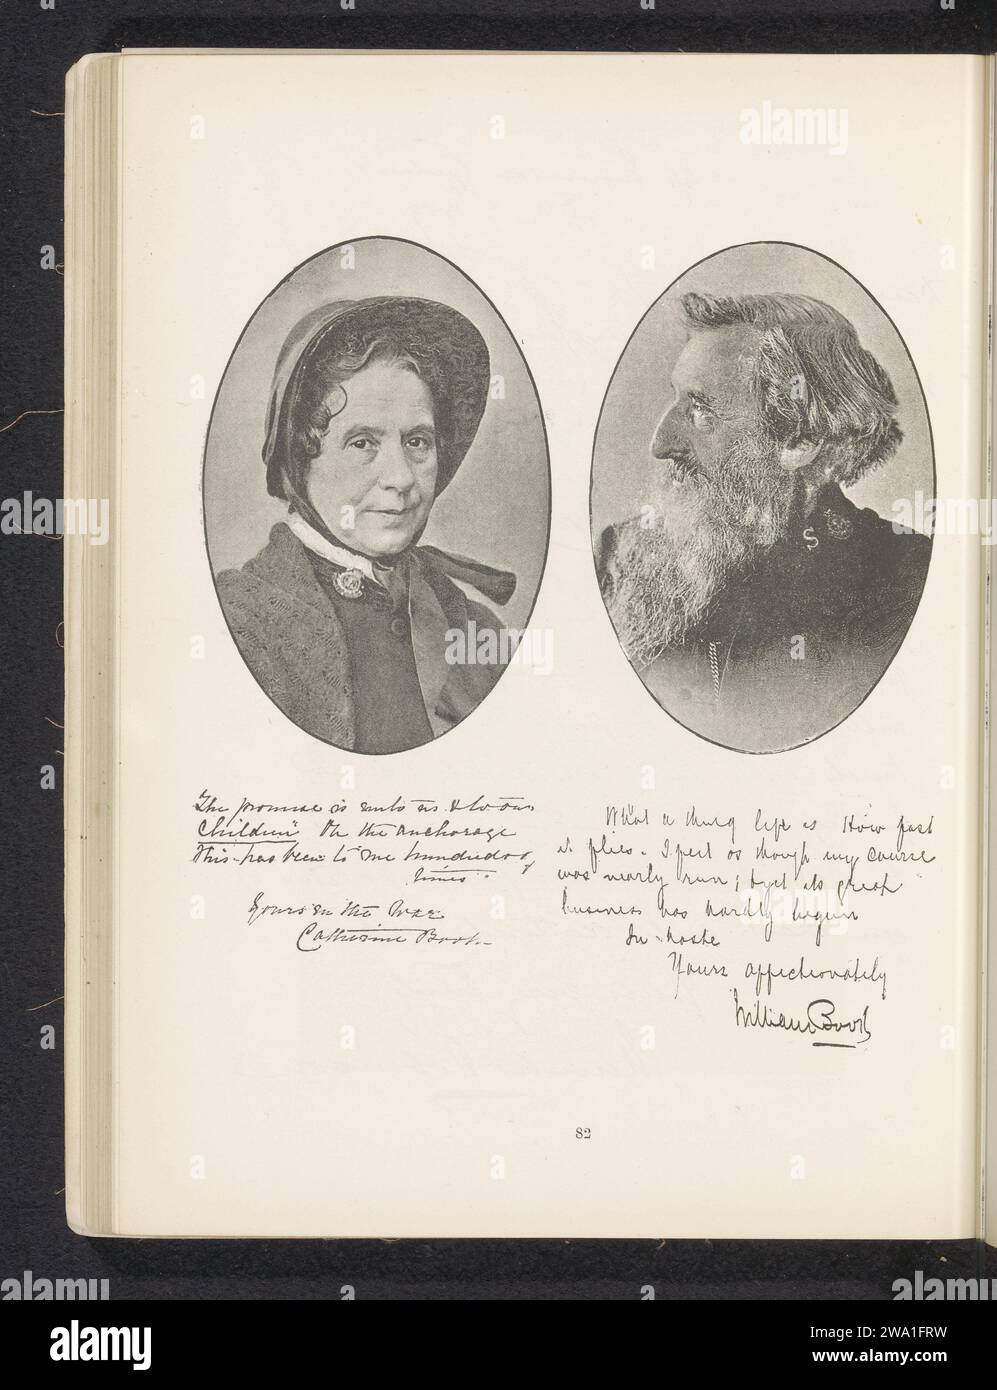 The promise is unto us & to our
Children" Oh the anchorage
this has been to me hundreds of
times".
Yours in the War
Catherine Booth
What a thing life is How fast
it flies. I feel as though my course
was nearly run; & yet its great
business has hardly begun
In haste
Yours affectionately
William Booth
S
82
alamy
Image ID: 2WA1FRW
www.alamy.com